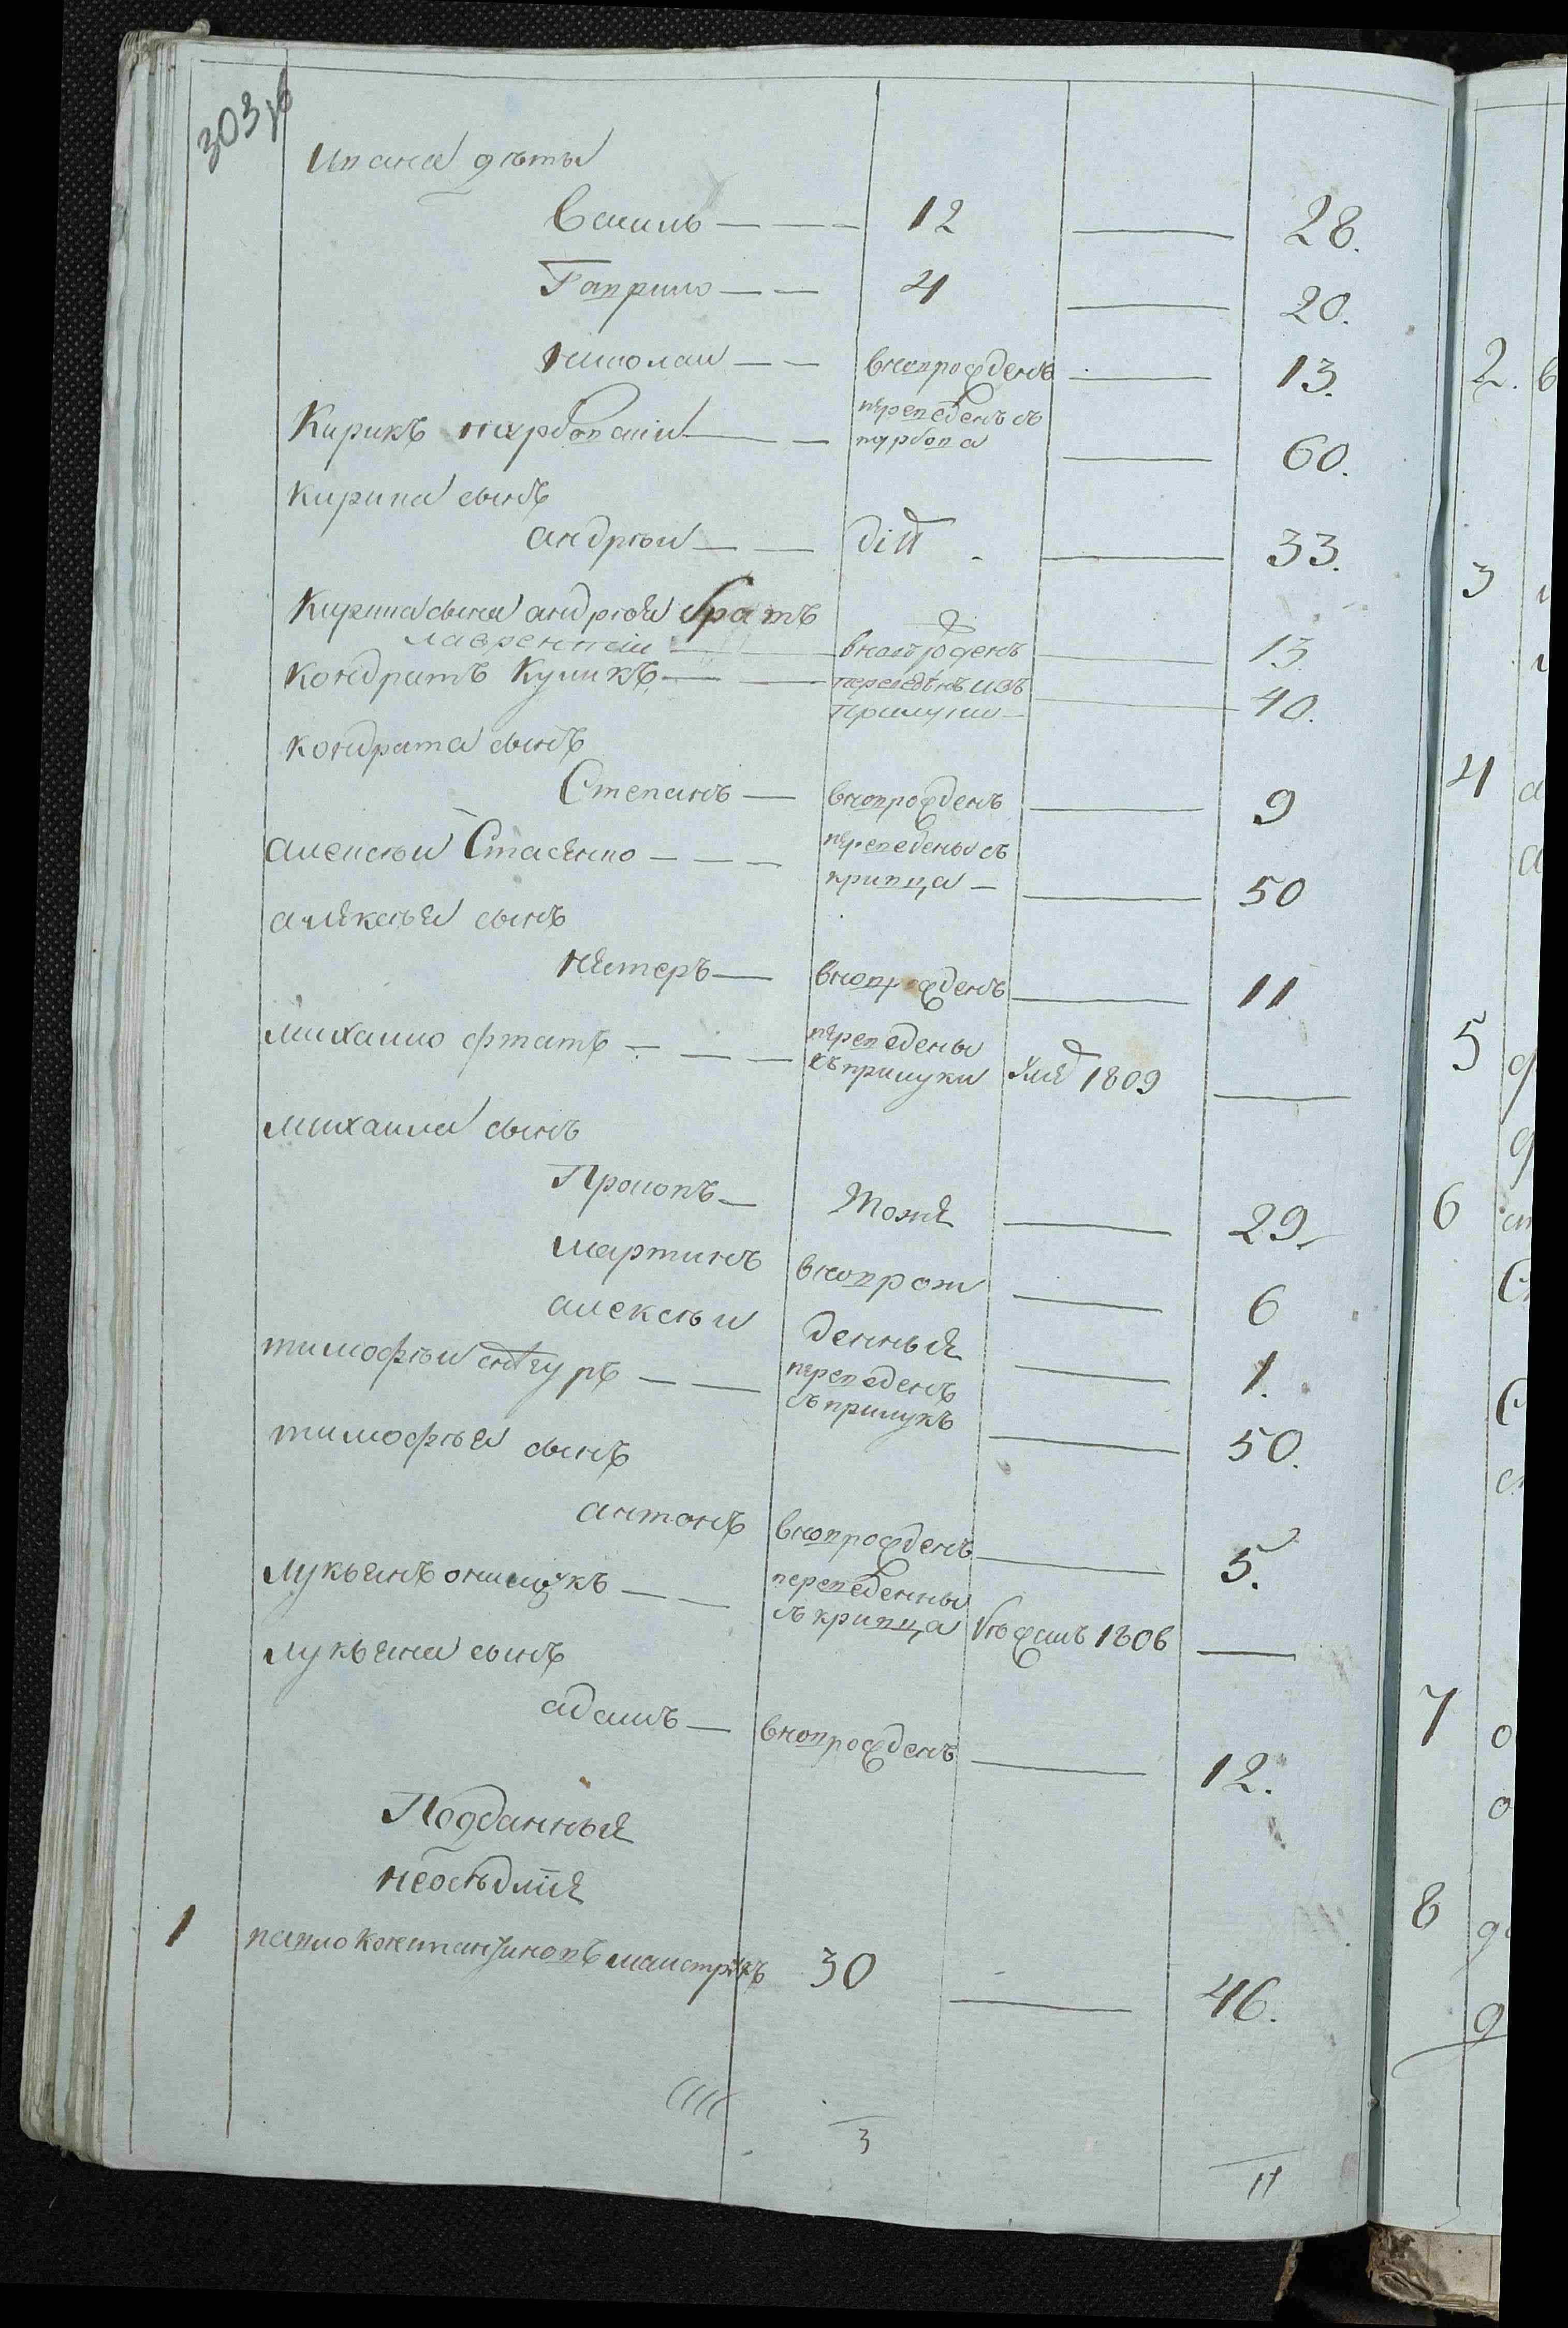 303 об
Ивана дѣти
Василь — — — 12 — 28.
Гаврило — — 4 — 20.
Николай — — вновѣрожденъ — 13.
Кирикъ — переведенъ съ
турбова — 60.
Кирика сынъ
андрѣй — — — 33.
Кирика сына андрѣя братъ
лаврентій — — вновъ рожденъ — 13
Кондратъ Куликъ — — переведенъ изъ
Прилуки — 40.
Кондрата сынъ
Степанъ — вноврожденъ — 9
алексѣй Стасенко — — — переведены съ
кривца — — 50
алексѣя сынъ
нестеръ — вноврожденъ — 11
михайло — — — переведены
съ прилуки 1809 —
михайла сынъ
Прокопъ — тоже — 29.
мартинъ вноврож — 6
алексѣй денные — 1.
тимофѣй — — переведенъ
съ прилукъ — 50.
тимофѣя сынъ
антонъ вноврожденъ — 5.
лукьянъ — — переведенны
съ кривца бѣжалъ 1806 —
лукьяна сынъ
адамъ — вноврожденъ — 12.
Подданные
неосѣдлые
1 павло Константиновъ 30 — 46.
3 11
2.
3
4
5
6
7
8